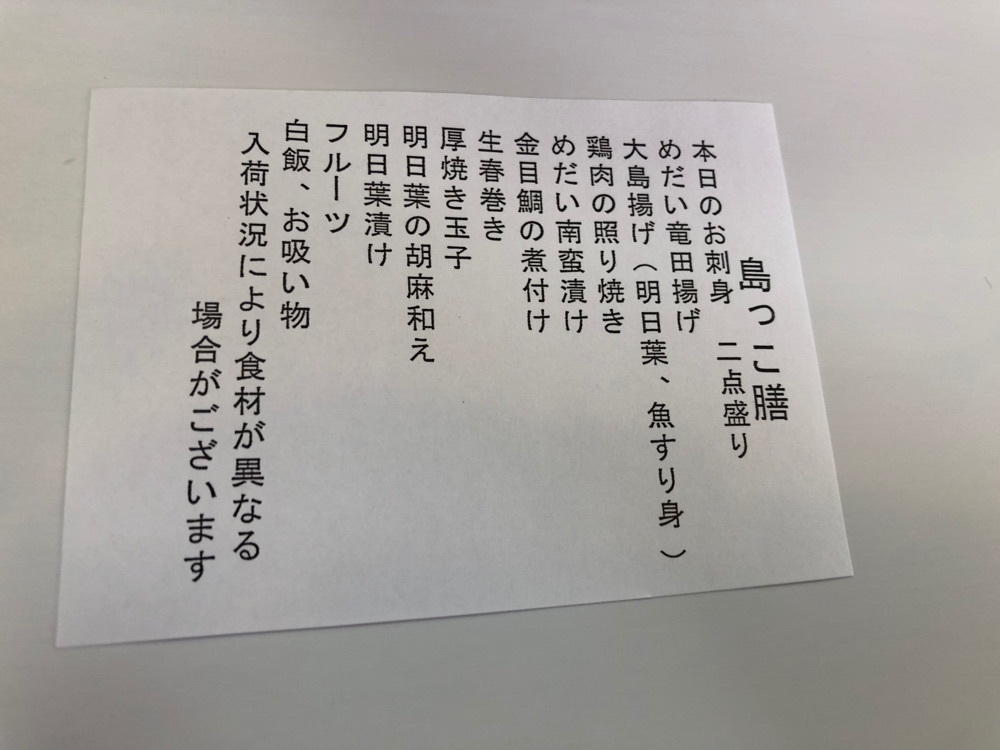 島っこ膳
本日のお刺身　二点盛り
めだい竜田揚げ
大島揚げ（明日葉、魚すり身）
鶏肉の照り焼き
めだい南蛮漬け
金目鯛の煮付け
生春巻き
厚焼き玉子
明日葉の胡麻和え
明日葉漬け
フルーツ
白飯、お吸い物
入荷状況により食材が異なる
場合がございます